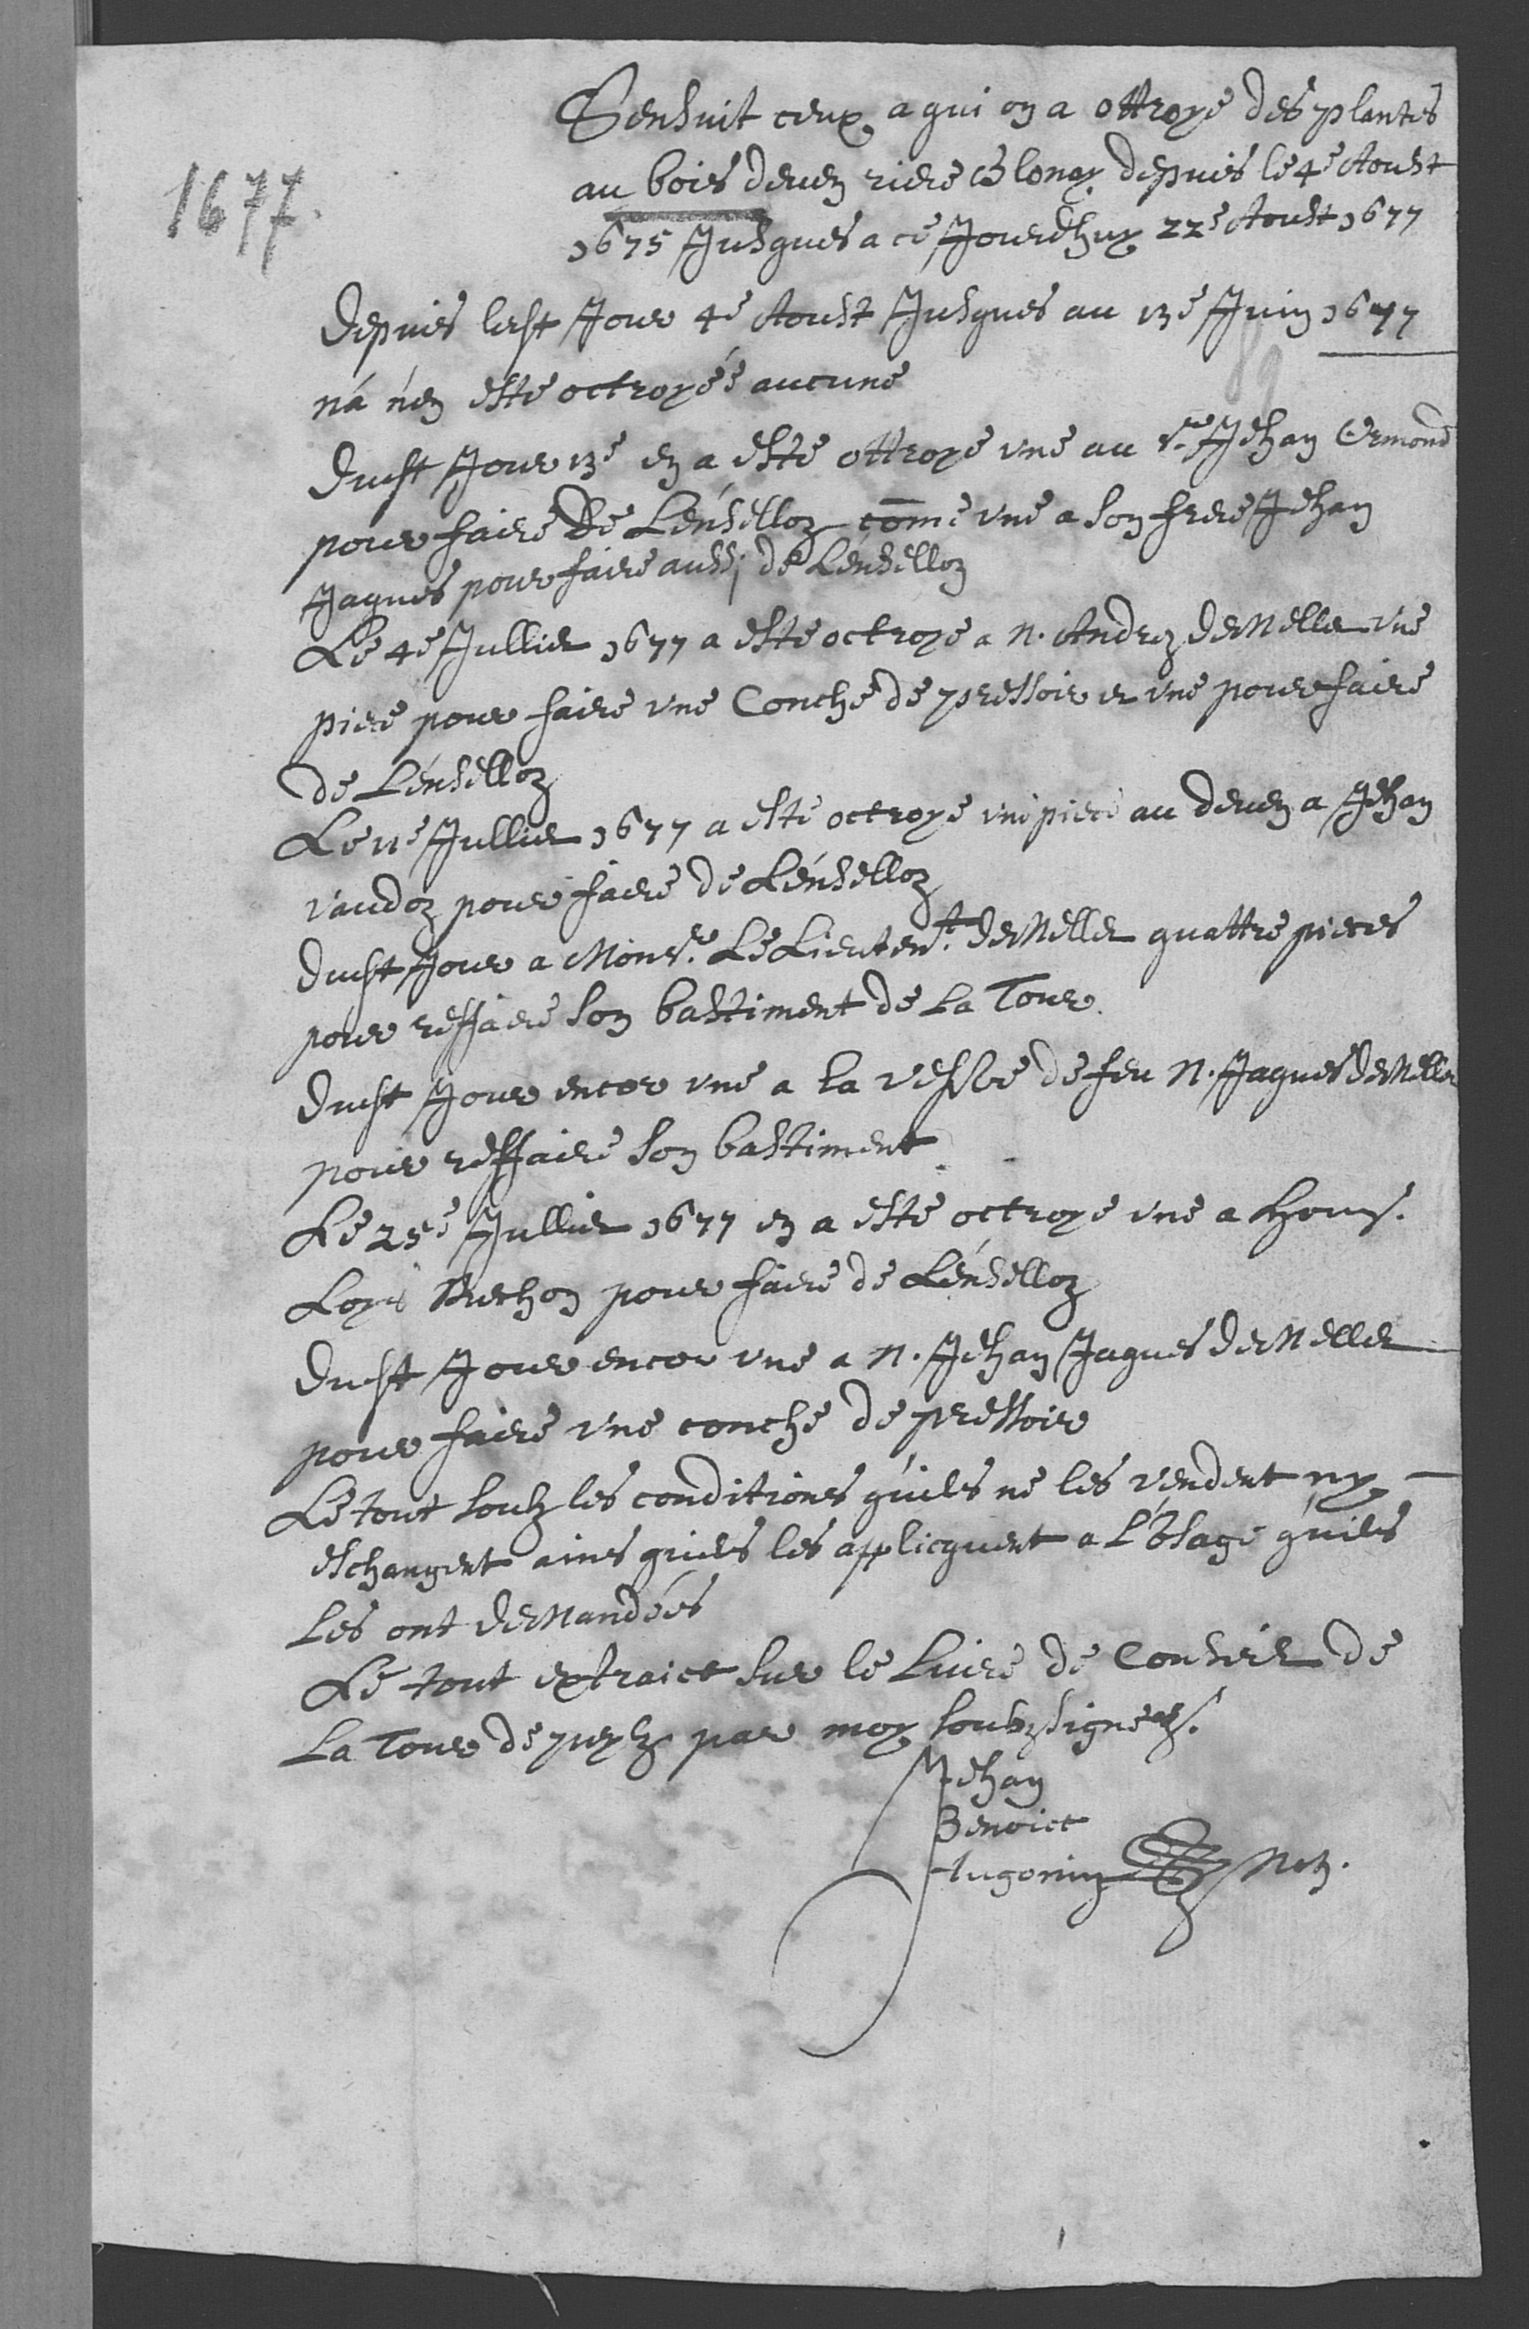 1677.
Sensuit ceux a qui on a ottroye des plantes
au bois deven riere Blonay depuis le 4e Aoust
1675 Jusques a ce Jourdhuy 22e Aoust 1677
Depuis lest Jour 4e Aoust Jusques au 13e Juin 1677
n'a n'en este octroyée aucune
Dudt Jour 13e en a este ottroye une au Sr Jehan Ormond
pour faire de Lenselloz come une a son frere Jehan
Jaques pour faire aussj de Lenselloz
Le 4e Jullier 1677 a este octroye a N. Andrez deMellet une
piece pour faire une Conche de pressoir et une pour faire
de Lénselloz
Le 11e Jullier 1677 a este octroye une piece au deven a Jehan
vaudoz pour faire de Lénselloz
Dudt Jour a Monsr. Le Lieutent. deMellet quattre pieces
pour reffaire son bastiment de La Tour.
Dudt Jour encor une a la vefve de feu N. Jaques deMellet
pour reffaire son bastiment
Le 25e Jullier 1677 en a este octroye une a hons.
Loys Bechon pour faire de Lénselloz
Dudt Jour encor une a N. Jehan Jaques deMellet
pour faire une conche de pressoir
Le tout soubz les conditions quils ne les vendent ny
eschangent ains quils les applicquent a L'Usage quils
les ont deMandées
Le tout extraict sur le Livre de Conseil de
La Tour de peylz par moy soubzsigné
Jehan
Benoict
Hugonin Not.